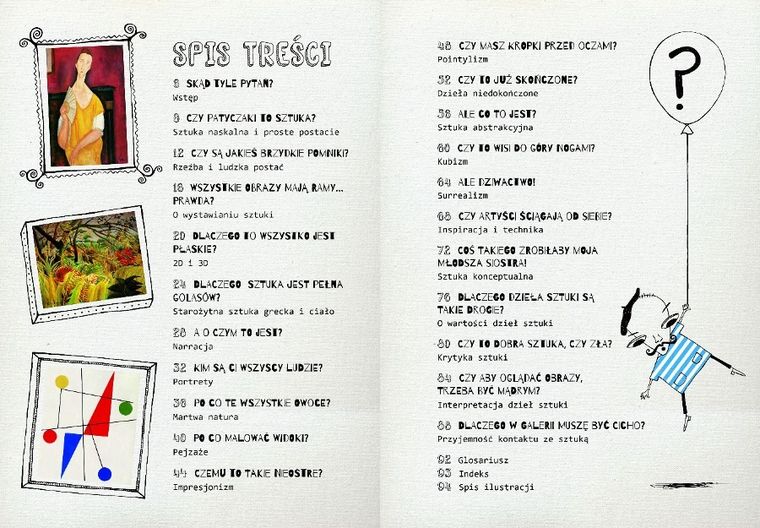 SPIS TREŚCI
8 SKĄD TYLE PYTAŃ?
Wstęp
9 CZY PATYCZAKI TO SZTUKA?
Sztuka naskalna i proste postacie
12 CZY SĄ JAKIEŚ BRZYDKIE POMNIKI?
Rzeźba i ludzka postać
16 WSZYSTKIE OBRAZY MAJĄ RAMY...
PRAWDA?
O wystawianiu sztuki
20 DLACZEGO TO WSZYSTKO JEST
PŁASKIE?
2D i 3D
24 DLACZEGO SZTUKA JEST PEŁNA
GOLASÓW?
Starożytna sztuka grecka i ciało
28 A O CZYM TO JEST?
Narracja
32 KIM SĄ CI WSZYSCY LUDZIE?
Portrety
36 PO CO TE WSZYSTKIE OWOCE?
Martwa natura
40 PO CO MALOWAĆ WIDOKI?
Pejzaże
44 CZEMU TO TAKIE NIEOSTRE?
Impresjonizm
48 CZY MASZ KROPKI PRZED OCZAMI?
Pointylizm
52 CZY TO JUŻ SKOŃCZONE?
Dzieła niedokończone
56 ALE CO TO JEST?
Sztuka abstrakcyjna
60 CZY TO WISI DO GÓRY NOGAMI?
Kubizm
64 ALE DZIWACTWO!
Surrealizm
68 CZY ARTYŚCI ŚCIĄGAJĄ OD SIEBIE?
Inspiracja i technika
72 COŚ TAKIEGO ZROBIŁABY MOJA
MŁODSZA SIOSTRA!
Sztuka konceptualna
76 DLACZEGO DZIEŁA SZTUKI SĄ
TAKIE DROGIE?
O wartości dzieł sztuki
80 CZY TO DOBRA SZTUKA, CZY ZŁA?
Krytyka sztuki
84 CZY ABY OGLĄDAĆ OBRAZY,
TRZEBA BYĆ MĄDRYM?
Interpretacja dzieł sztuki
88 DLACZEGO W GALERII MUSZĘ BYĆ CICHO?
Przyjemność kontaktu ze sztuką
92 Glosariusz
93 Indeks
94 Spis ilustracji
?